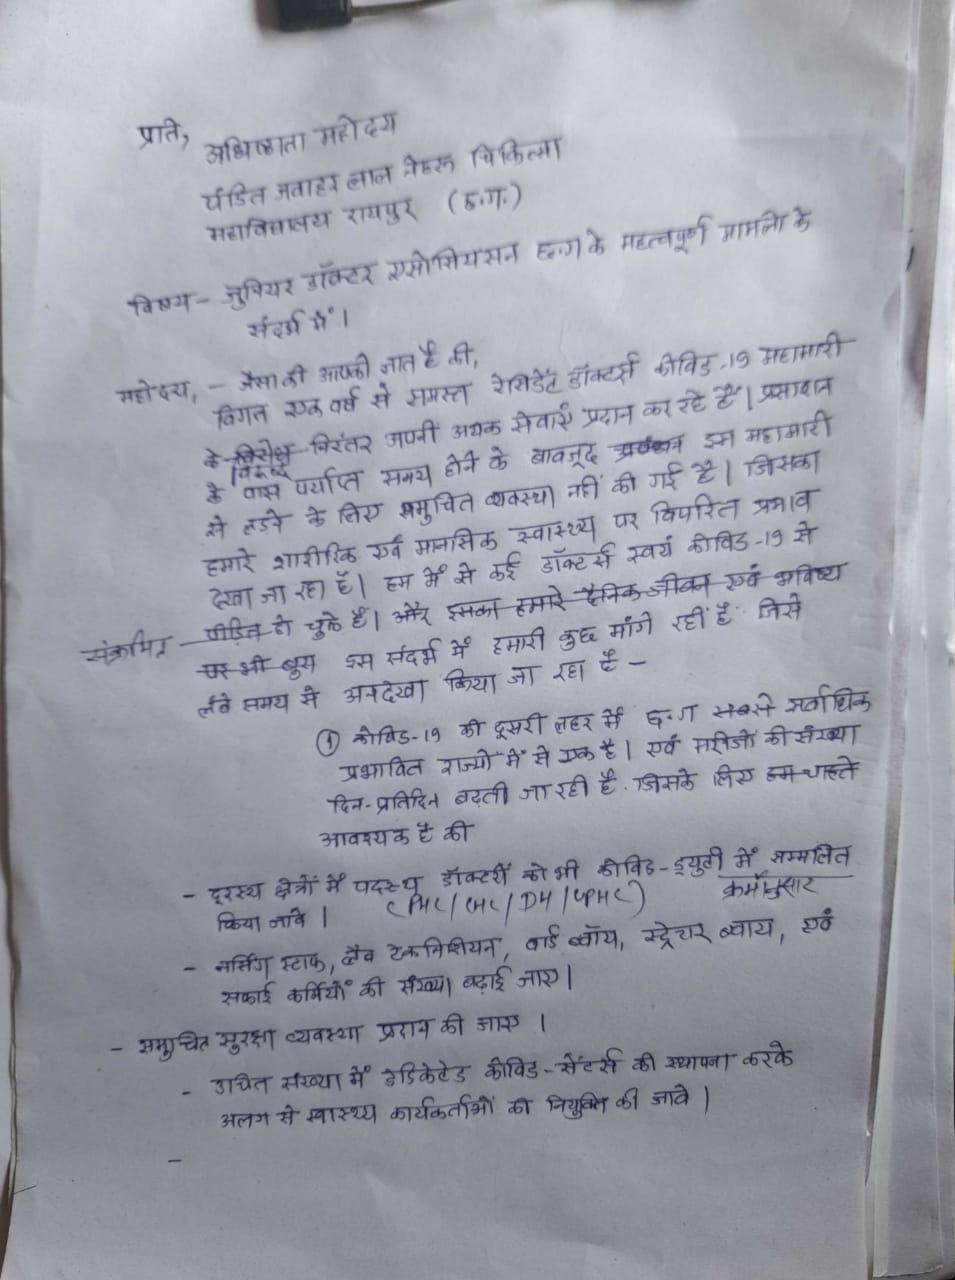 प्रति,
अधिष्ठाता महोदय
पंडित जवाहर लाल नेहरू चिकित्सा
महाविद्यालय रायपुर (छ.ग.)
विषय - जुनियर डॉक्टर एसोसियेसन छ.ग के महत्वपूर्ण मामलो के
संदर्भ में।
महोदय, - जैसा की आपको ज्ञात है की,
विगत एक वर्ष से समस्त रेसिडेंट डॉक्टर्स कोविड-19 महामारी
के विरूद्ध निरंतर अपनी अथक सेवाएं प्रदान कर रहे हैं। प्रशासन
के पास पर्याप्त समय होने के बावजूद इस महामारी
से लडने के लिए समुचित व्यवस्था नहीं की गई है। जिसका
हमारे शारीरिक एवं मानसिक स्वास्थ्य पर विपरित प्रभाव
देखा जा रहा है। हम में से कई डॉक्टर्स स्वयं कोविड-19 से
संक्रमित पीडित हो चुके हैं। और इसका हमारे दैनिक जीवन एवं भविष्य
पर भी बुरा इस संदर्भ में हमारी कुछ मांगे रहीं हैं जिसे
लंबे समय से अनदेखा किया जा रहा है -
① कोविड-19 की दूसरी लहर में छ.ग सबसे सर्वाधिक
प्रभावित राज्यों में से एक है। एवं मरीजों की संख्या
दिन-प्रतिदिन बढ़ती जा रही है. जिसके लिए हम चाहते
आवश्यक है की
- दूरस्थ क्षेत्रों में पदस्थ डॉक्टरों को भी कोविड-ड्युटी में सम्मलित
किया जावे। (PHC/CHC/DH/UPHC) क्रमानुसार
- नर्सिंग स्टाफ, लैब टेकनिशियन, वार्ड ब्वॉय, स्ट्रेचर ब्वाय, एवं
सफाई कर्मियों की संख्या बढ़ाई जाए।
- समुचित सुरक्षा व्यवस्था प्रदान की जाए ।
- उचित संख्या में डेडिकेटेड कोविड-सेंटर्स की स्थापना करके
अलग से स्वास्थ्य कार्यकर्ताओं की नियुक्ति की जावे।
-